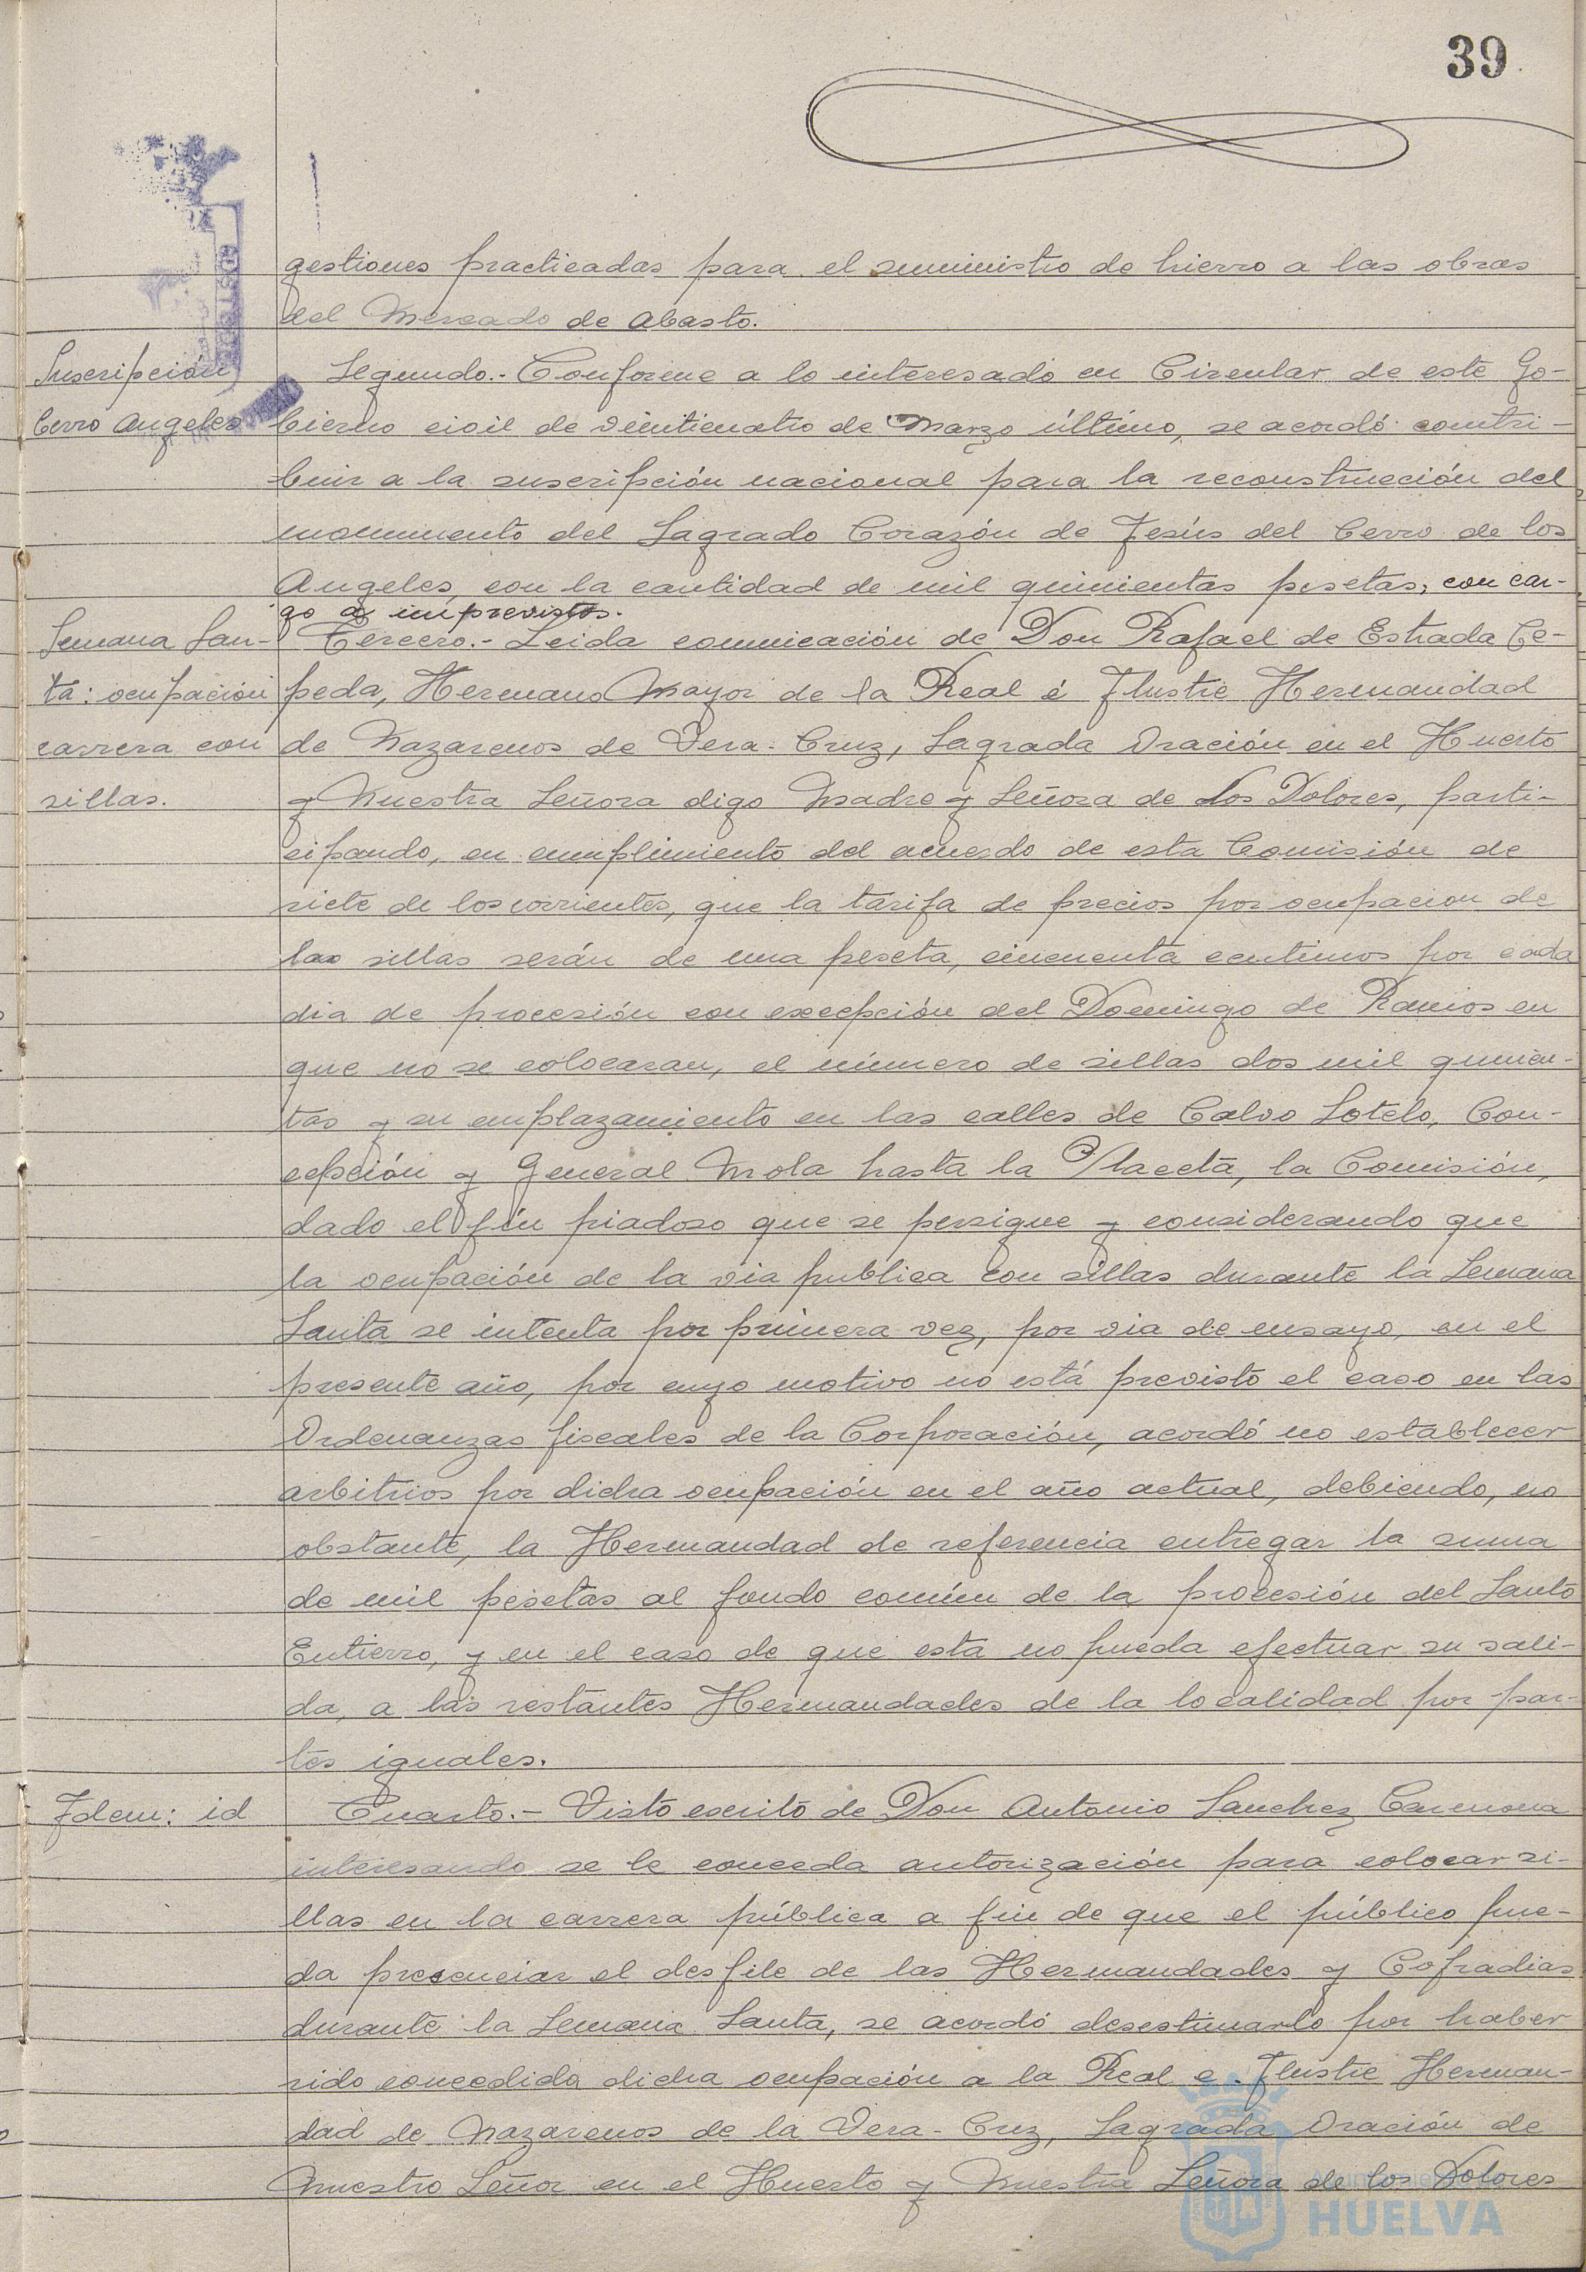 39
gestiones practicadas para el suministro de hierro a las obras
del Mercado de Abasto.
Suscripción
Cerro Angeles
Segundo.- Conforme a lo interesado en Circular de este Go-
bierno civil de veinticuatro de Marzo último, se acordó contri-
buir a la suscripción nacional para la reconstrucción del
monumento del Sagrado Corazón de Jesús del Cerro de los
Angeles, con la cantidad de mil quinientas pesetas, con car-
go a imprevistos.
Semana San-
ta: ocupación
carrera con
sillas.
Tercero.- Leida comunicación de Don Rafael de Estrada Ce-
peda, Hermano Mayor de la Real é Ilustre Hermandad
de Nazarenos de Vera-Cruz, Sagrada Oración en el Huerto
y Nuestra Señora digo Madre y Señora de los Dolores, parti-
cipando, en cumplimiento del acuerdo de esta Comisión de
siete de los corrientes, que la tarifa de precios por ocupacion de
las sillas serán de una peseta, cincuenta centimos por cada
dia de procesión con excepción del Domingo de Ramos en
que no se colocaran, el número de sillas dos mil quinien-
tas y su emplazamiento en las calles de Calvo Sotelo, Con-
cepción y General Mola hasta la Placeta, la Comisión,
dado el fin piadoso que se persigue y considerando que
la ocupación de la via publica con sillas durante la Semana
Santa se intenta por primera vez, por via de ensayo, en el
presente año, por cuyo motivo no está previsto el caso en las
Ordenanzas fiscales de la Corporación, acordó no establecer
arbitrios por dicha ocupación en el año actual, debiendo, no
obstante, la Hermandad de referencia entregar la suma
de mil pesetas al fondo común de la procesión del Santo
Entierro, y en el caso de que esta no pueda efectuar su sali-
da, a las restantes Hermandades de la localidad por par-
tes iguales.
Idem: id
Cuarto.- Visto escrito de Don Antonio Sanchez Carmona
interesando se le conceda autorización para colocar si-
llas en la carrera pública a fin de que el público pue-
da presenciar el desfile de las Hermandades y Cofradias
durante la Semana Santa, se acordó desestimarlo por haber
sido concedida dicha ocupación a la Real e Ilustre Herman-
dad de Nazarenos de la Vera-Cruz, Sagrada Oración de
Nuestro Señor en el Huerto y Nuestra Señora de los Dolores
HUELVA